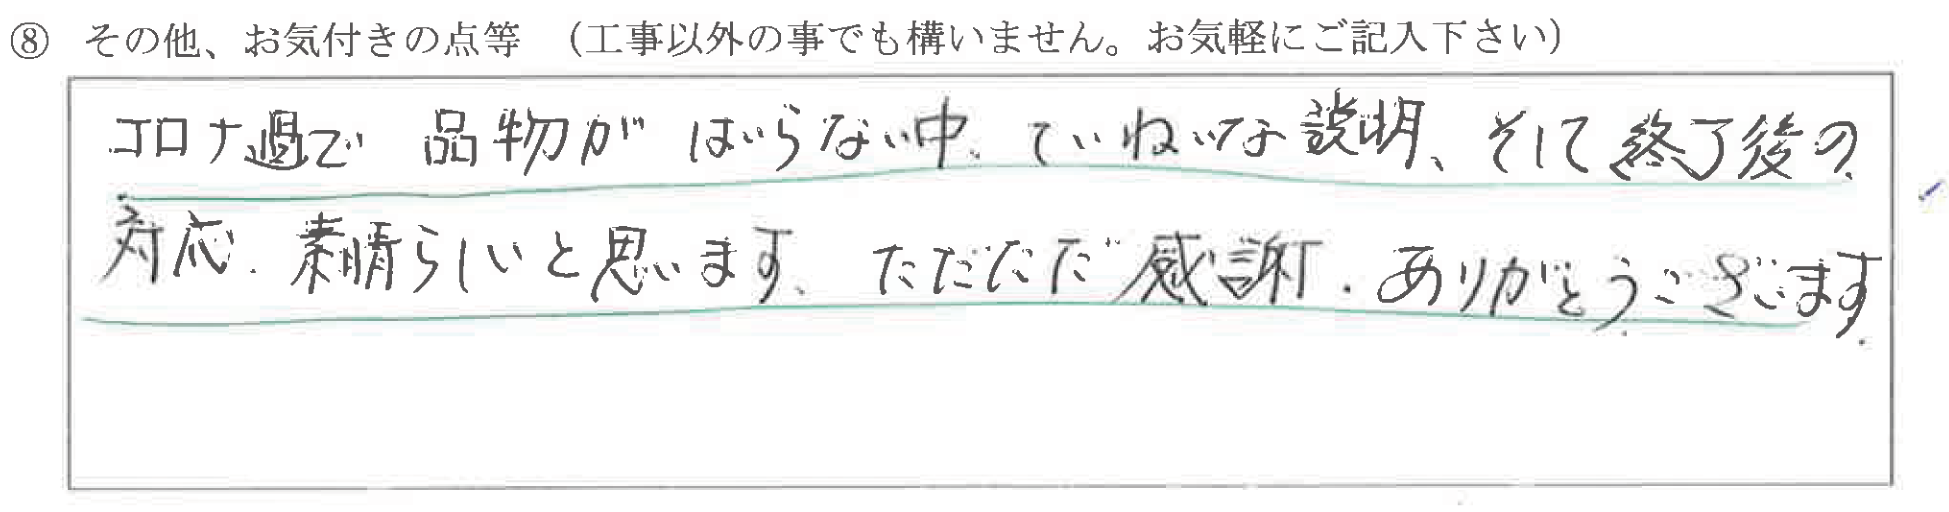 ⑧ その他、お気付きの点等 （工事以外の事でも構いません。お気軽にご記入下さい）
コロナ過で 品物がはいらない中、ていねいな説明、そして終了後の
対応、素晴らしいと思います、ただただ感謝、ありがとうございます。